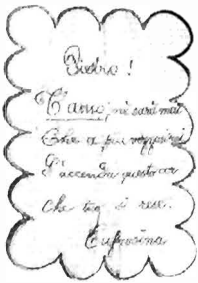 Pietro!
T'amo, nè sarà mai
Che a più
S'accenda questo cor
Che tuo si rese.
Eufrosina